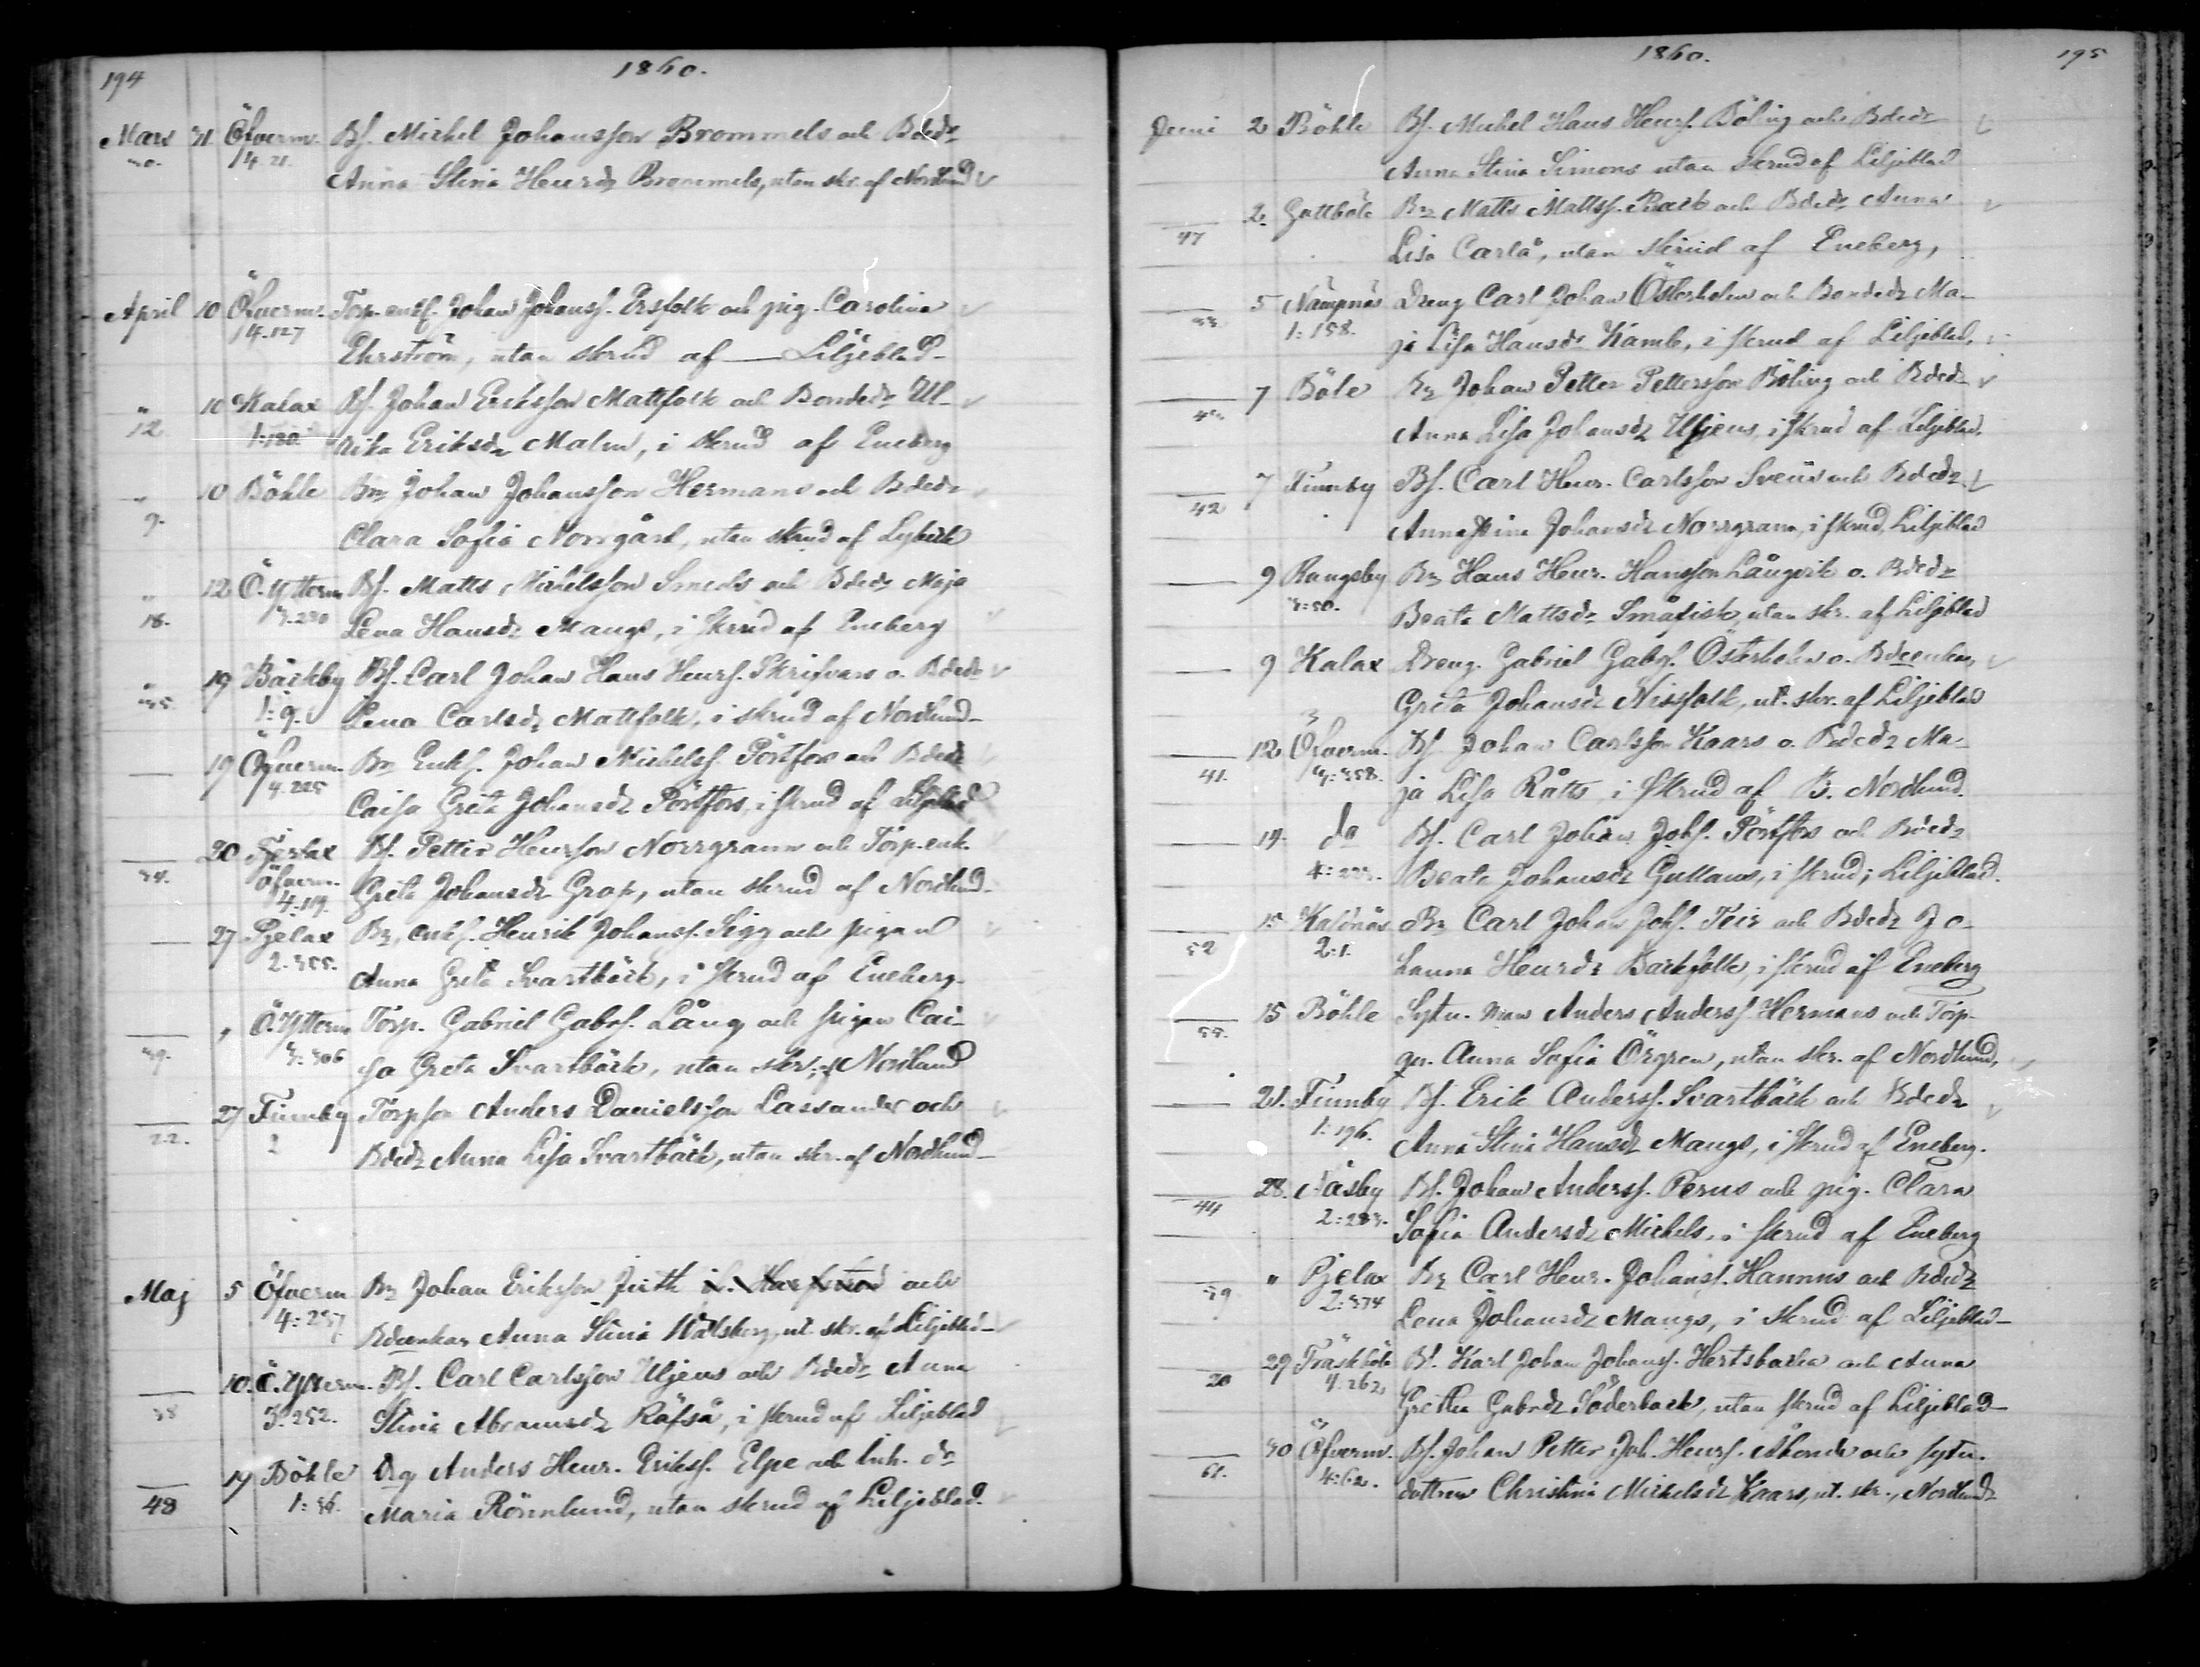 194
1860.
Mars 31 Öfverm. Bs. Michel Johansson Brommels och Bdedr
4.21. Anna Stina Henrdr Brommels, utan skr. af Nordlund
April 10 Öfverm. Torp. enkl. Johan Johanss. Ersfolk och pig. Carolina
4.127 Ehrström, utan skrud af — Liljeblad
" 10 Kalax Bs. Johan Eriksson Mattfolk och Bondedr Ul-
12 1:180 rika Eriksdr Malm, i skrud af Eneberg
" 10 Böhle Bn Johan Johansson Hermans och Bdedr
9. Clara Sofia Norrgård, utan skrud af
" 12 Ö. Ytterm Bs. Matts Michelsson Smeds och Bdedr Maja
18. 3.230 Lena Hansdr Mangs, i skrud af Eneberg
" 19 Bäckby Bs. Carl Johan Hans Henrs. Skrifvars o. Bdedr
35. 1:9. Lena Carlsdr Mattfolk, i skrud af Nordlund
— 19 Öfverm Bn Enkl. Johan Michelss. Pörtfors och Bdedr
4.225 Caisa Greta Johansdr Pörtfors, i skrud af Liljeblad
— 20 Tjerlax Bs. Petter Henrsson Norrgrann och Torp.enk.
34. Öfverm. 4.119. Greta Johansdr Grop, utan skrud af Nordlund
— 27 Pjelax Bn, enkl. Henrik Johanss. Sigg och pigan
2.355. Anna Greta Svartbäck, i skrud af Eneberg.
— " Ö. Ytterm Torp. Gabriel Gabrs. Lång och pigan Cai-
39. 3:306 sa Greta Svartbäck, utan skr. af Nordlund
— 27 Finnby Torpson Anders Danielsson Lassander och
22. 2 Bdedr Anna Lisa Svartbäck, utan skr. af Nordlund
Maj 5 Öfverm Bn Johan Eriksson Juth och
4:257 Bdeenkan Anna Stina Wälsberg, ut. skr. af Liljeblad
— 10. Ö. Ytterm. Bs. Carl Carlsson Uljens och Bdedr Anna
38 3:252. Stina Abramsdr Räfså, i skrud af Liljeblad
— 19 Böhle Drg Anders Henr. Erikss. Elpe och Inh. dr
48 1:86. Maria Rönnlund, utan skrud af Liljeblad.
1860.
195
Juni 2 Böhle Bs. Michel Hans Henrs. Böling och Bdedr
Anna Stina Simons utan skrud af Liljeblad
— 2. Gottböle Bn Matts Mattss. Back och Bdedr Anna
47 Lisa Carlå, utan skrud af Eneberg,
— 5 Nämpnäs Dreng Carl Johan Österholm och Bondedr Ma-
33 1:158. ja Lisa Hansdr Kamb, i skrud af Liljeblad.
— 7 Böle Bn Johan Petter Pettersson Böling och Bdedr
Anna Lisa Johansdr Uljens, i skrud af Liljeblad.
— 7 Finnby Bs. Carl Henr. Carlsson Svens och Bdedr
42 Anna Stina Johansdr Norrgrann, i skrud, Liljeblad
— 9 Rangsby Bn Hans Henr. Hansson Långvik o. Bdedr
3:50. Beata Mattsdr Småfisk, utan skr. af Liljeblad
— 9 Kalax Dreng. Gabriel Gabrs. Österholm o. Bdeenkan
Greta Johansdr Nissfolk, ut. skr. af Liljeblad
— 12 Öfverm. Bs. Johan Carlsson Kaars o. Bdedr Ma-
41. 4:358. ja Lisa Råtts, i skrud af B. Nordlund.
— 14. do Bs. Carl Johan Johs. Pörtfors och Bdedr
Beata Johansdr Gullans, i skrud, Liljeblad.
— 15 Kaldnäs Bn Carl Johan Johs. Teir och Bdedr Jo-
52 2:1. hanna Henrdr Backfolk, i skrud af Eneberg
— 15 Böhle Sytn. man Anders Anderss. Hermans och Torp-
55. qn. Anna Sofia Örgren, utan skr. af Nordlund,
— 21. Finnby Bs. Erik Anderss. Svartbäck och Bdedr
1:196. Anna Stina Hansdr Mangs, i skrud af Eneberg.
— 28. Näsby Bs. Johan Anderss. Perus och pig. Clara
44 2:283. Sofia Andersdr Michels, i skrud af Eneberg
— " Pjelax Bn Carl Henr. Johanss. Hannus och Bdedr
59 2:374 Lena Johansdr Mangs, i skrud af Liljeblad
— 29 Träskböle Bs. Karl Johan Johanss. Hertsbacka och Anna
20 4:262. Gretha Gabrdr Söderback, utan skrud af Liljeblad
— 30 Öfverm. Bs. Johan Petter Joh. Henrs. Åbonde och sytn.
61. 4:62. dottren Christina Michelsdr Kaars, ut. skr., Nordlund